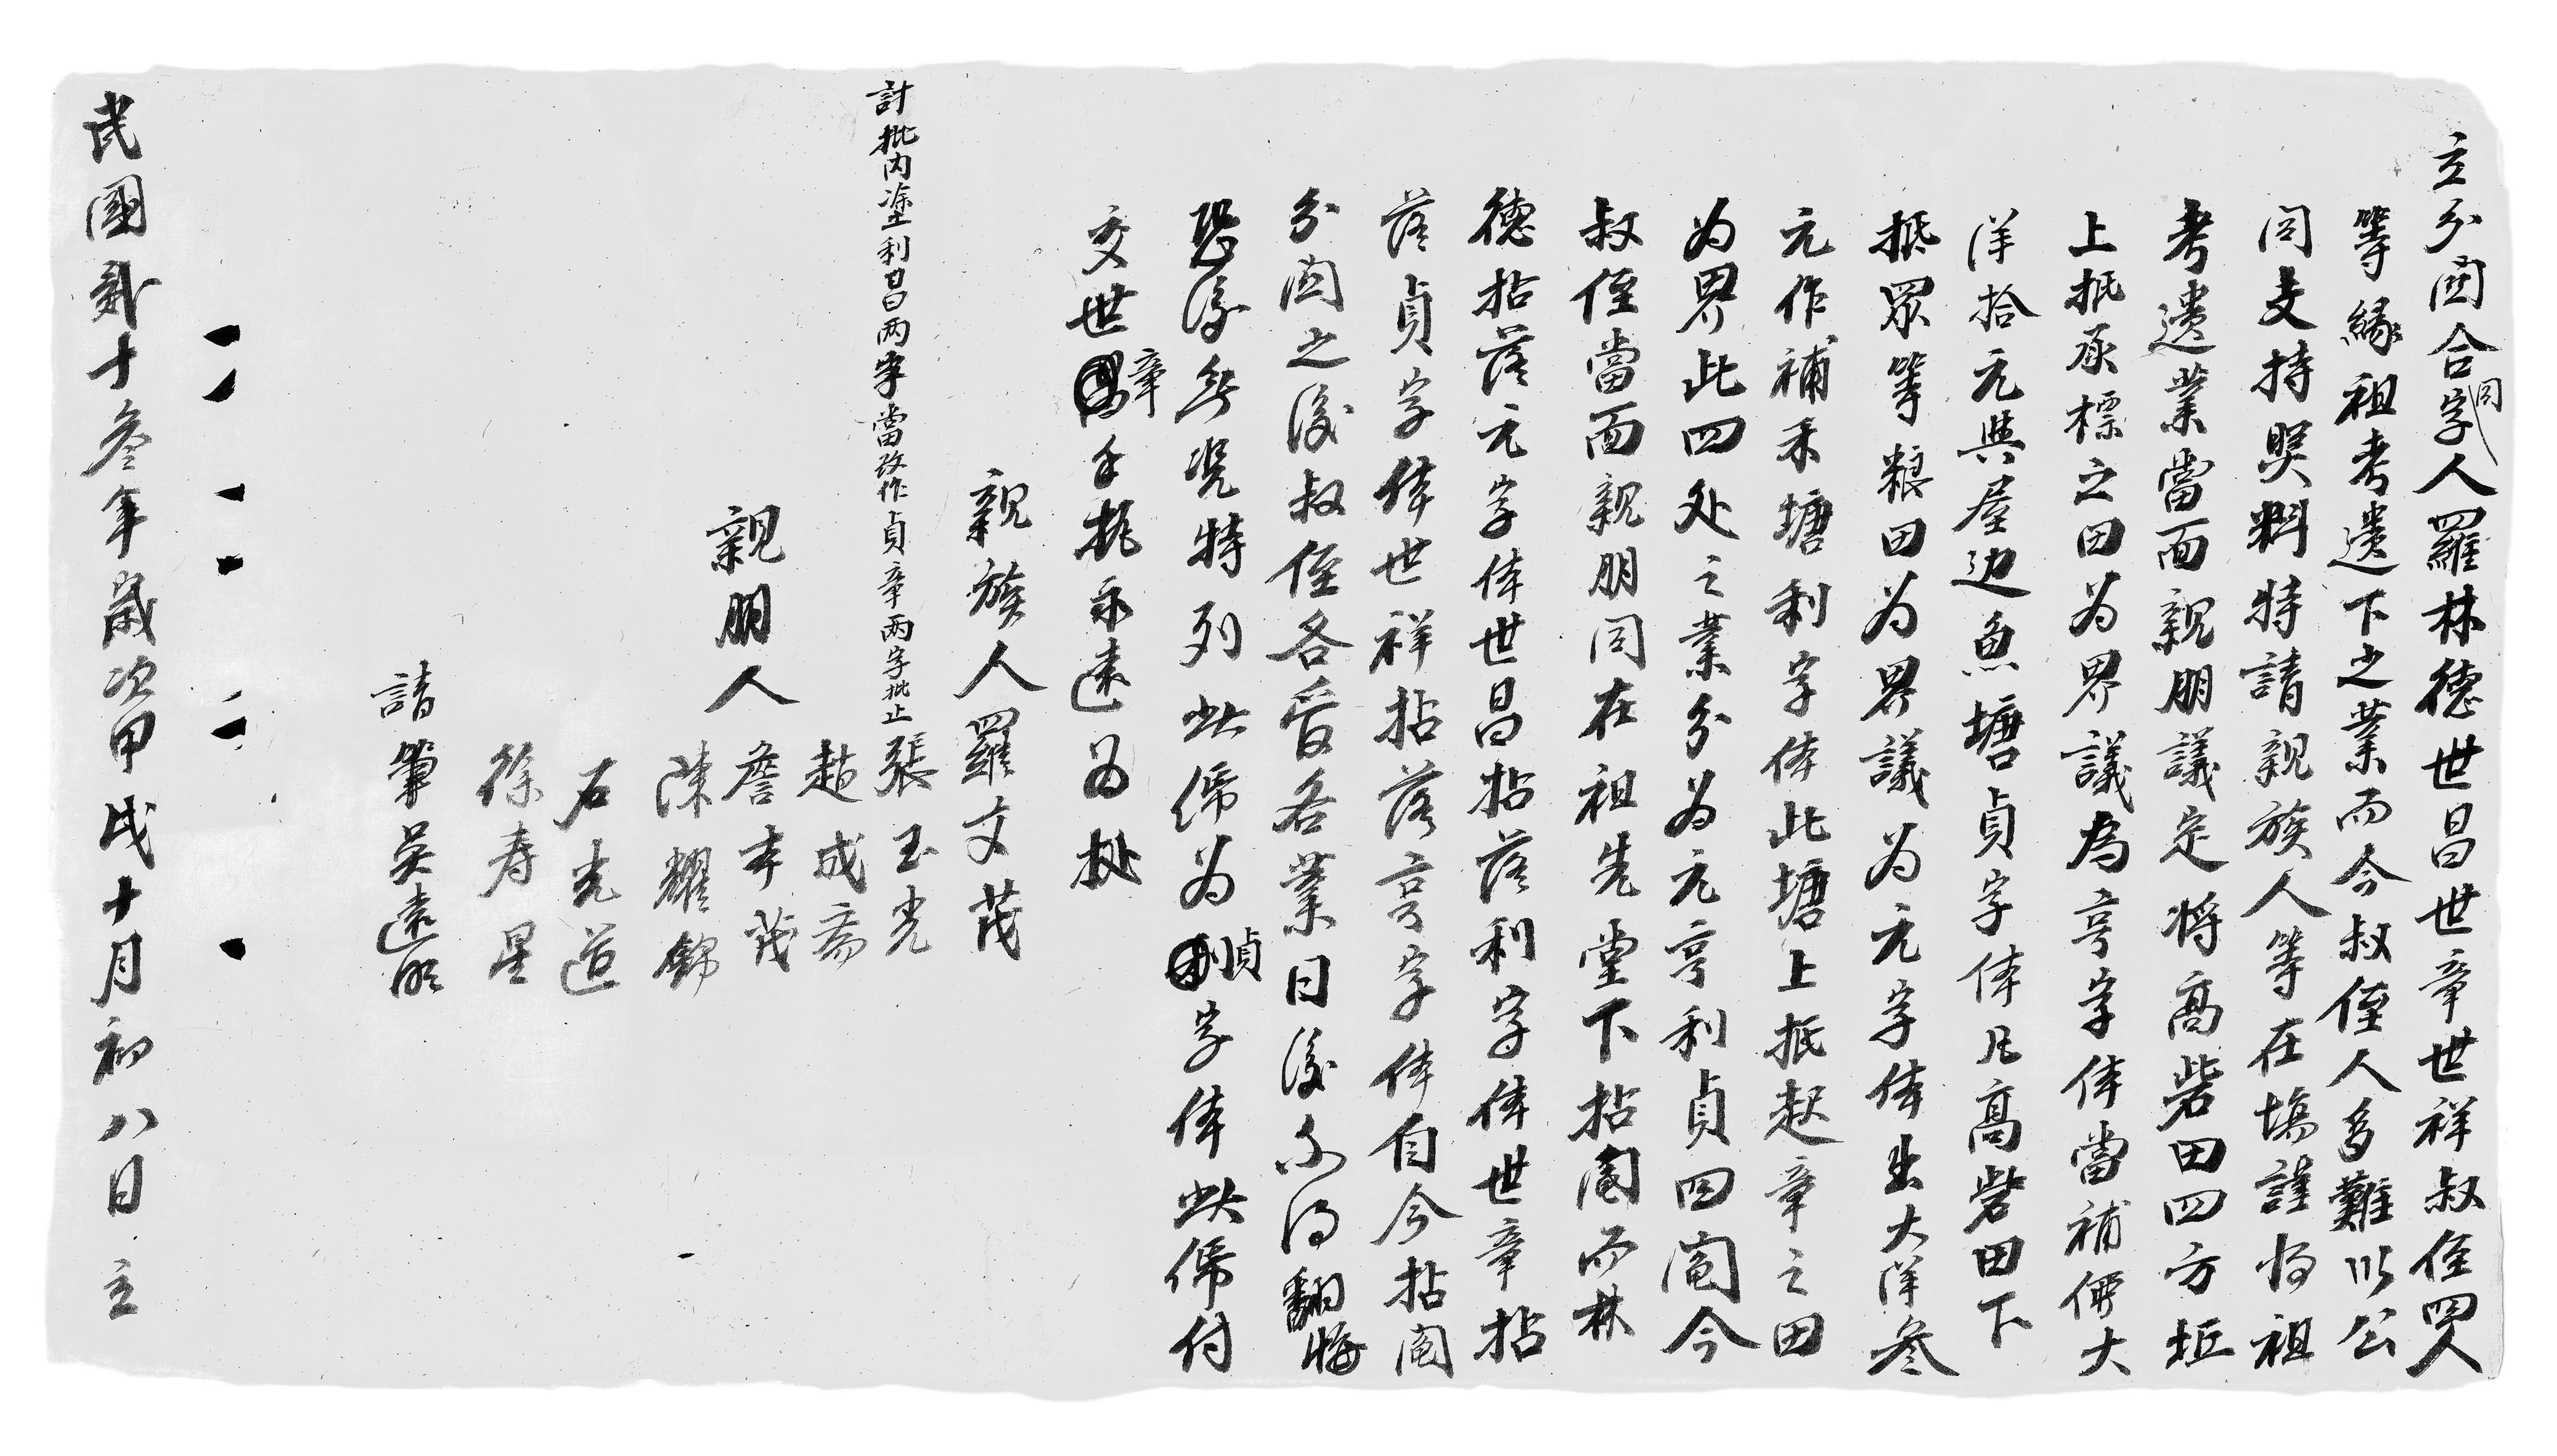 立分関合同字人羅林德世昌世章世祥叔侄四人
等緣祖考遺下之業而今叔侄人多難以公
同支持照料特請親族人等在塲謹将祖
考遺業當面親朋議定将高砦田四方坵
上抵承標之田为界議為亨字体當補俤大
洋拾元與屋边魚塘貞字体凡高砦田下
抵眾等粮田为界議为元字体出大洋叁
元作補禾塘利字体此塘上抵起章之田
为界此四处之業分为元亨利貞四阄今
叔侄當面親朋同在祖先堂下拈阄而林
德拈落元字体世昌拈落利字体世章拈
落貞字体世祥拈落亨字体自今拈阄
分関之後叔侄各管各業日後不得翻悔
恐後無凭特列此俤为貞字体此俤付
交世章手執永遠为㨿
親族人羅文茂
計批内塗利昌两字當改作貞章两字批止
張玉光
趙成斋
親朋人詹本茂
陳耀錦
石光道
徐寿星
請筆吳遠明
民國貳十叁年歲次甲戌十月初八日立